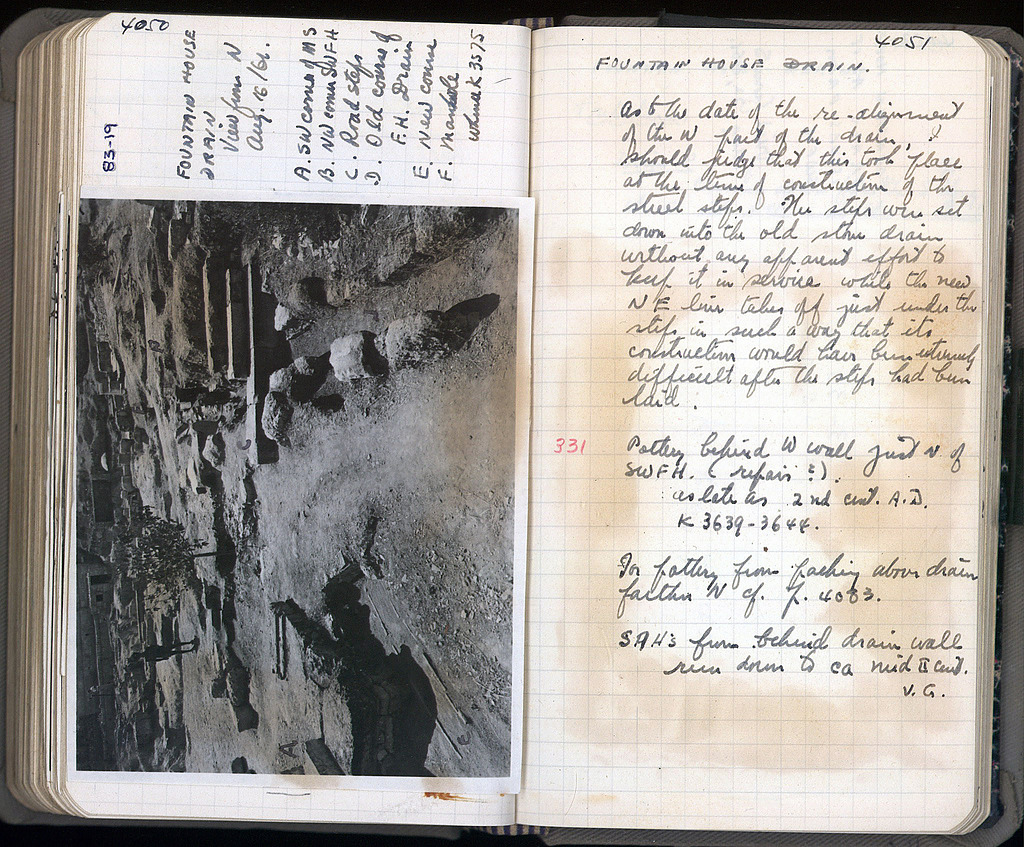 4050
83-19
FOUNTAIN HOUSE
DRAIN
View from N
Aug. 16/61.
A. SW corner of MS
B. NW corner SWFH
C. Road steps
D. Old course of
F.H. Drain
E. New course
F. Manhole
where K 3575
A
C
E
4051
FOUNTAIN HOUSE DRAIN.
As to the date of the re-alignment
of the W part of the drain, I
should judge that this took place
at the time of construction of the
street steps. The steps were set
down into the old stone drain
without any apparent effort to
keep it in service while the new
NE line takes off just under the
steps in such a way that its
construction would have been extremely
difficult after the steps had been
laid.
331
Pottery behind W wall just N of
SWFH. (repair?).
as late as 2nd cent. A.D.
K 3639-3644.
For pottery from packing above drain
farther N cf. p. 4083.
SAH's from behind drain wall
run down to ca mid II cent.
V.G.